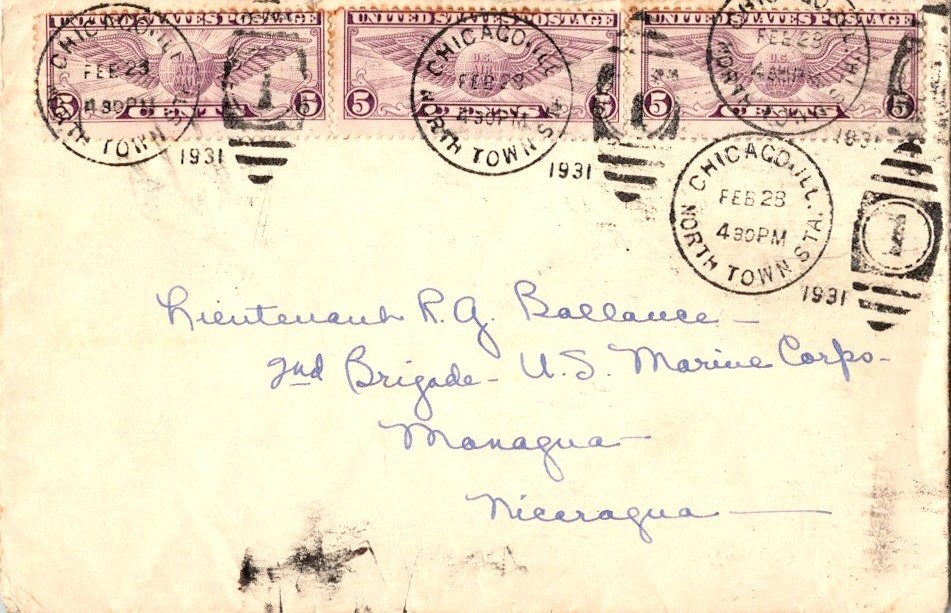 UNITED STATES POSTAGE UNITED STATES POSTAGE UNITED STATES POSTAGE
U.S. AIR MAIL
5 CENTS 5 5 CENTS 5 5 CENTS 5
CHICAGO, ILL.
FEB 28
4 30 PM
NORTH TOWN STA.
1931
1
CHICAGO, ILL.
FEB 28
4 30 PM
NORTH TOWN STA.
1931
CHICAGO, ILL.
FEB 28
4 30 PM
NORTH TOWN STA.
1931
CHICAGO, ILL.
FEB 28
4 30 PM
NORTH TOWN STA.
1931
1
Lieutenant R. G. Ballance –
2nd Brigade – U.S. Marine Corps –
Managua –
Nicaragua –